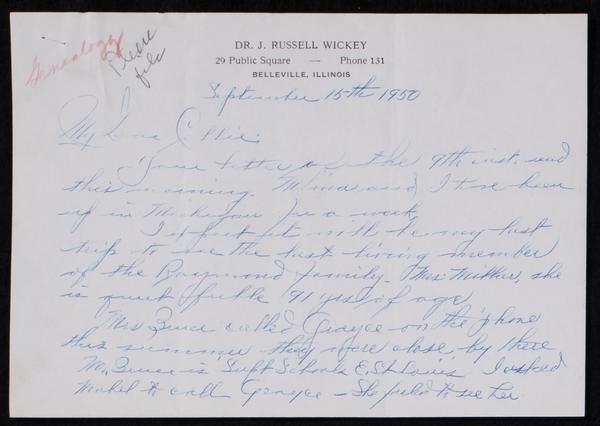 Genealogy
file
DR. J. RUSSELL WICKEY
29 Public Square — Phone 131
BELLEVILLE, ILLINOIS
September 15th 1950
My Dear Ollie:
Your letter of the 9th inst. recd
this morning. Mina and I have been
up in Michigan for a week.
I expect it will be my last
trip to see the last living member
of the Raymond family. Mrs. she
is quite feeble 91 yrs of age
Mrs Bruce called Grayce on the 'phone
this summer they were close by there
Mr. Bruce is Supt Schools E. St. Louis I asked
Mabel to call Grayce — She to see her